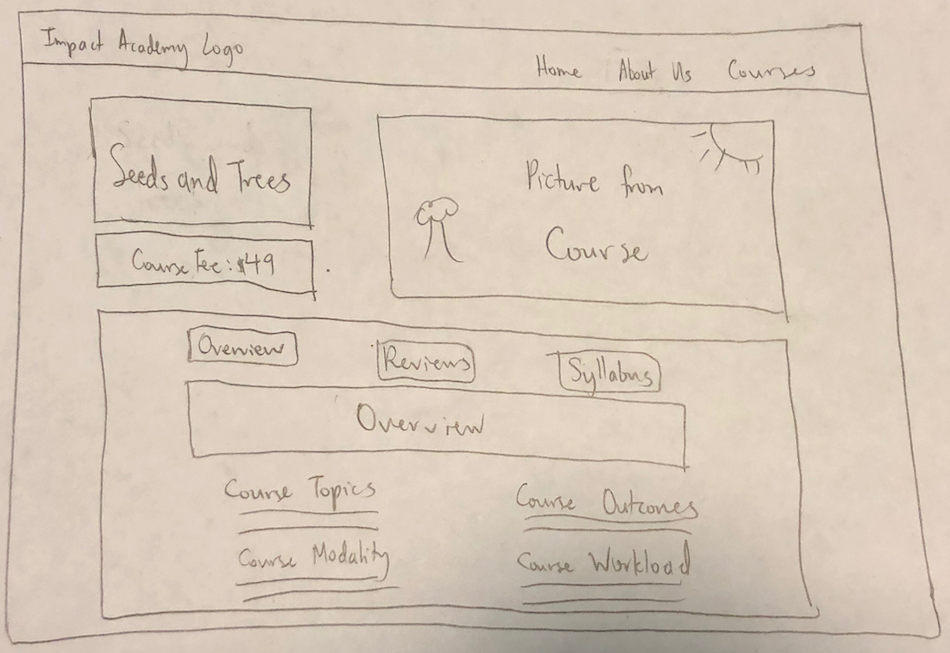 Impact Academy Logo
Home About Us Courses
Seeds and Trees
Course Fee: $49
Picture from
Course
Overview Reviews Syllabus
Overview
Course Topics
Course Outcomes
Course Modality
Course Workload